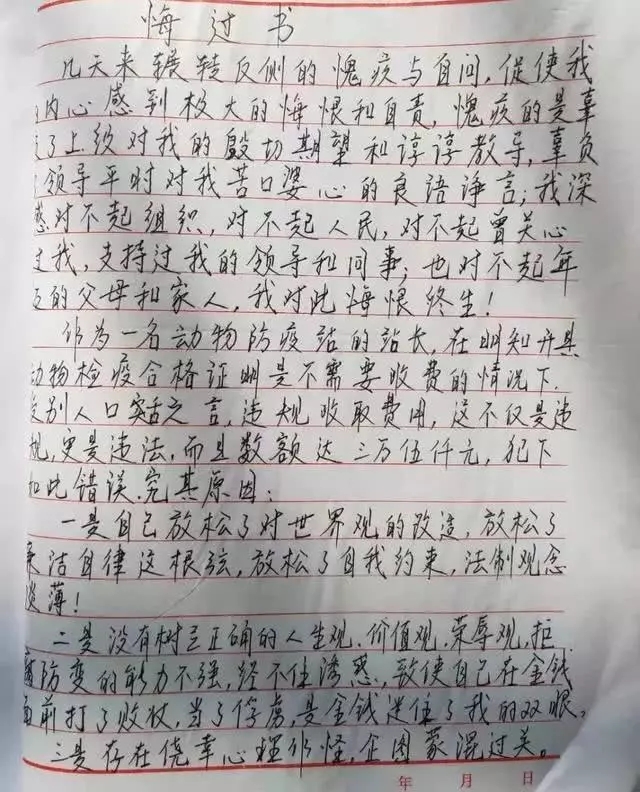 悔过书
几天来辗转反侧的愧疚与自问，促使我
内心感到极大的悔恨和自责，愧疚的是辜
了上级对我的殷切期望和谆谆教导，辜负
领导平时对我苦口婆心的良语诤言；我深
感对不起组织，对不起人民，对不起曾关心
过我，支持过我的领导和同事；也对不起年
迈的父母和家人，我对此悔恨终生！
作为一名动物防疫站的站长，在明知开具
动物检疫合格证明是不需要收费的情况下，
别人口实之言，违规收取费用，这不仅是违
规，更是违法，而且数额达三万伍仟元，犯下
如此错误．究其原因：
一是自己放松了对世界观的改造，放松了
廉洁自律这根弦，放松了自我约束，法制观念
淡薄！
二是没有树立正确的人生观．价值观．荣辱观，拒
腐防变的能力不强，经不住诱惑，致使自己在金钱
面前打了败仗，当了俘虏，是金钱迷住了我的双眼。
三是存在侥幸心理作怪，企图蒙混过关。
年 月 日